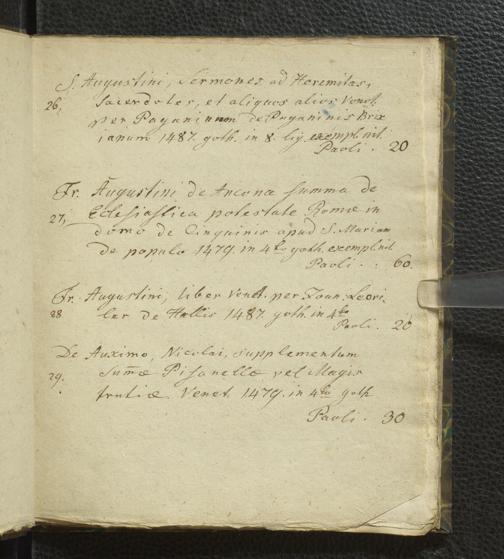 S. Augustini, Sermones ad Heremitas,
26, Sacerdotes, et aliquos alios Venet.
per Paganinum de Paganinis Brix
ianum 1487. goth. in 8. lig. exempl. nit.
Paoli. 20
Fr. Augustini de Ancona summa de
27, Eclesiastica potestate Romæ in
domo de Cinquinis apud S. Mariam
de populo 1479. in 4to goth. exempl. nit
Paoli. . 60.
Fr. Augustini, liber Venet. per Joan.
28 de Hallis 1487. goth. in 4to
Paoli. 20
De Auximo, Nicolai, supplementum
29. Summæ Pisanellæ vel Magis
trutiæ, Venet. 1479. in 4to goth
Paoli. 30